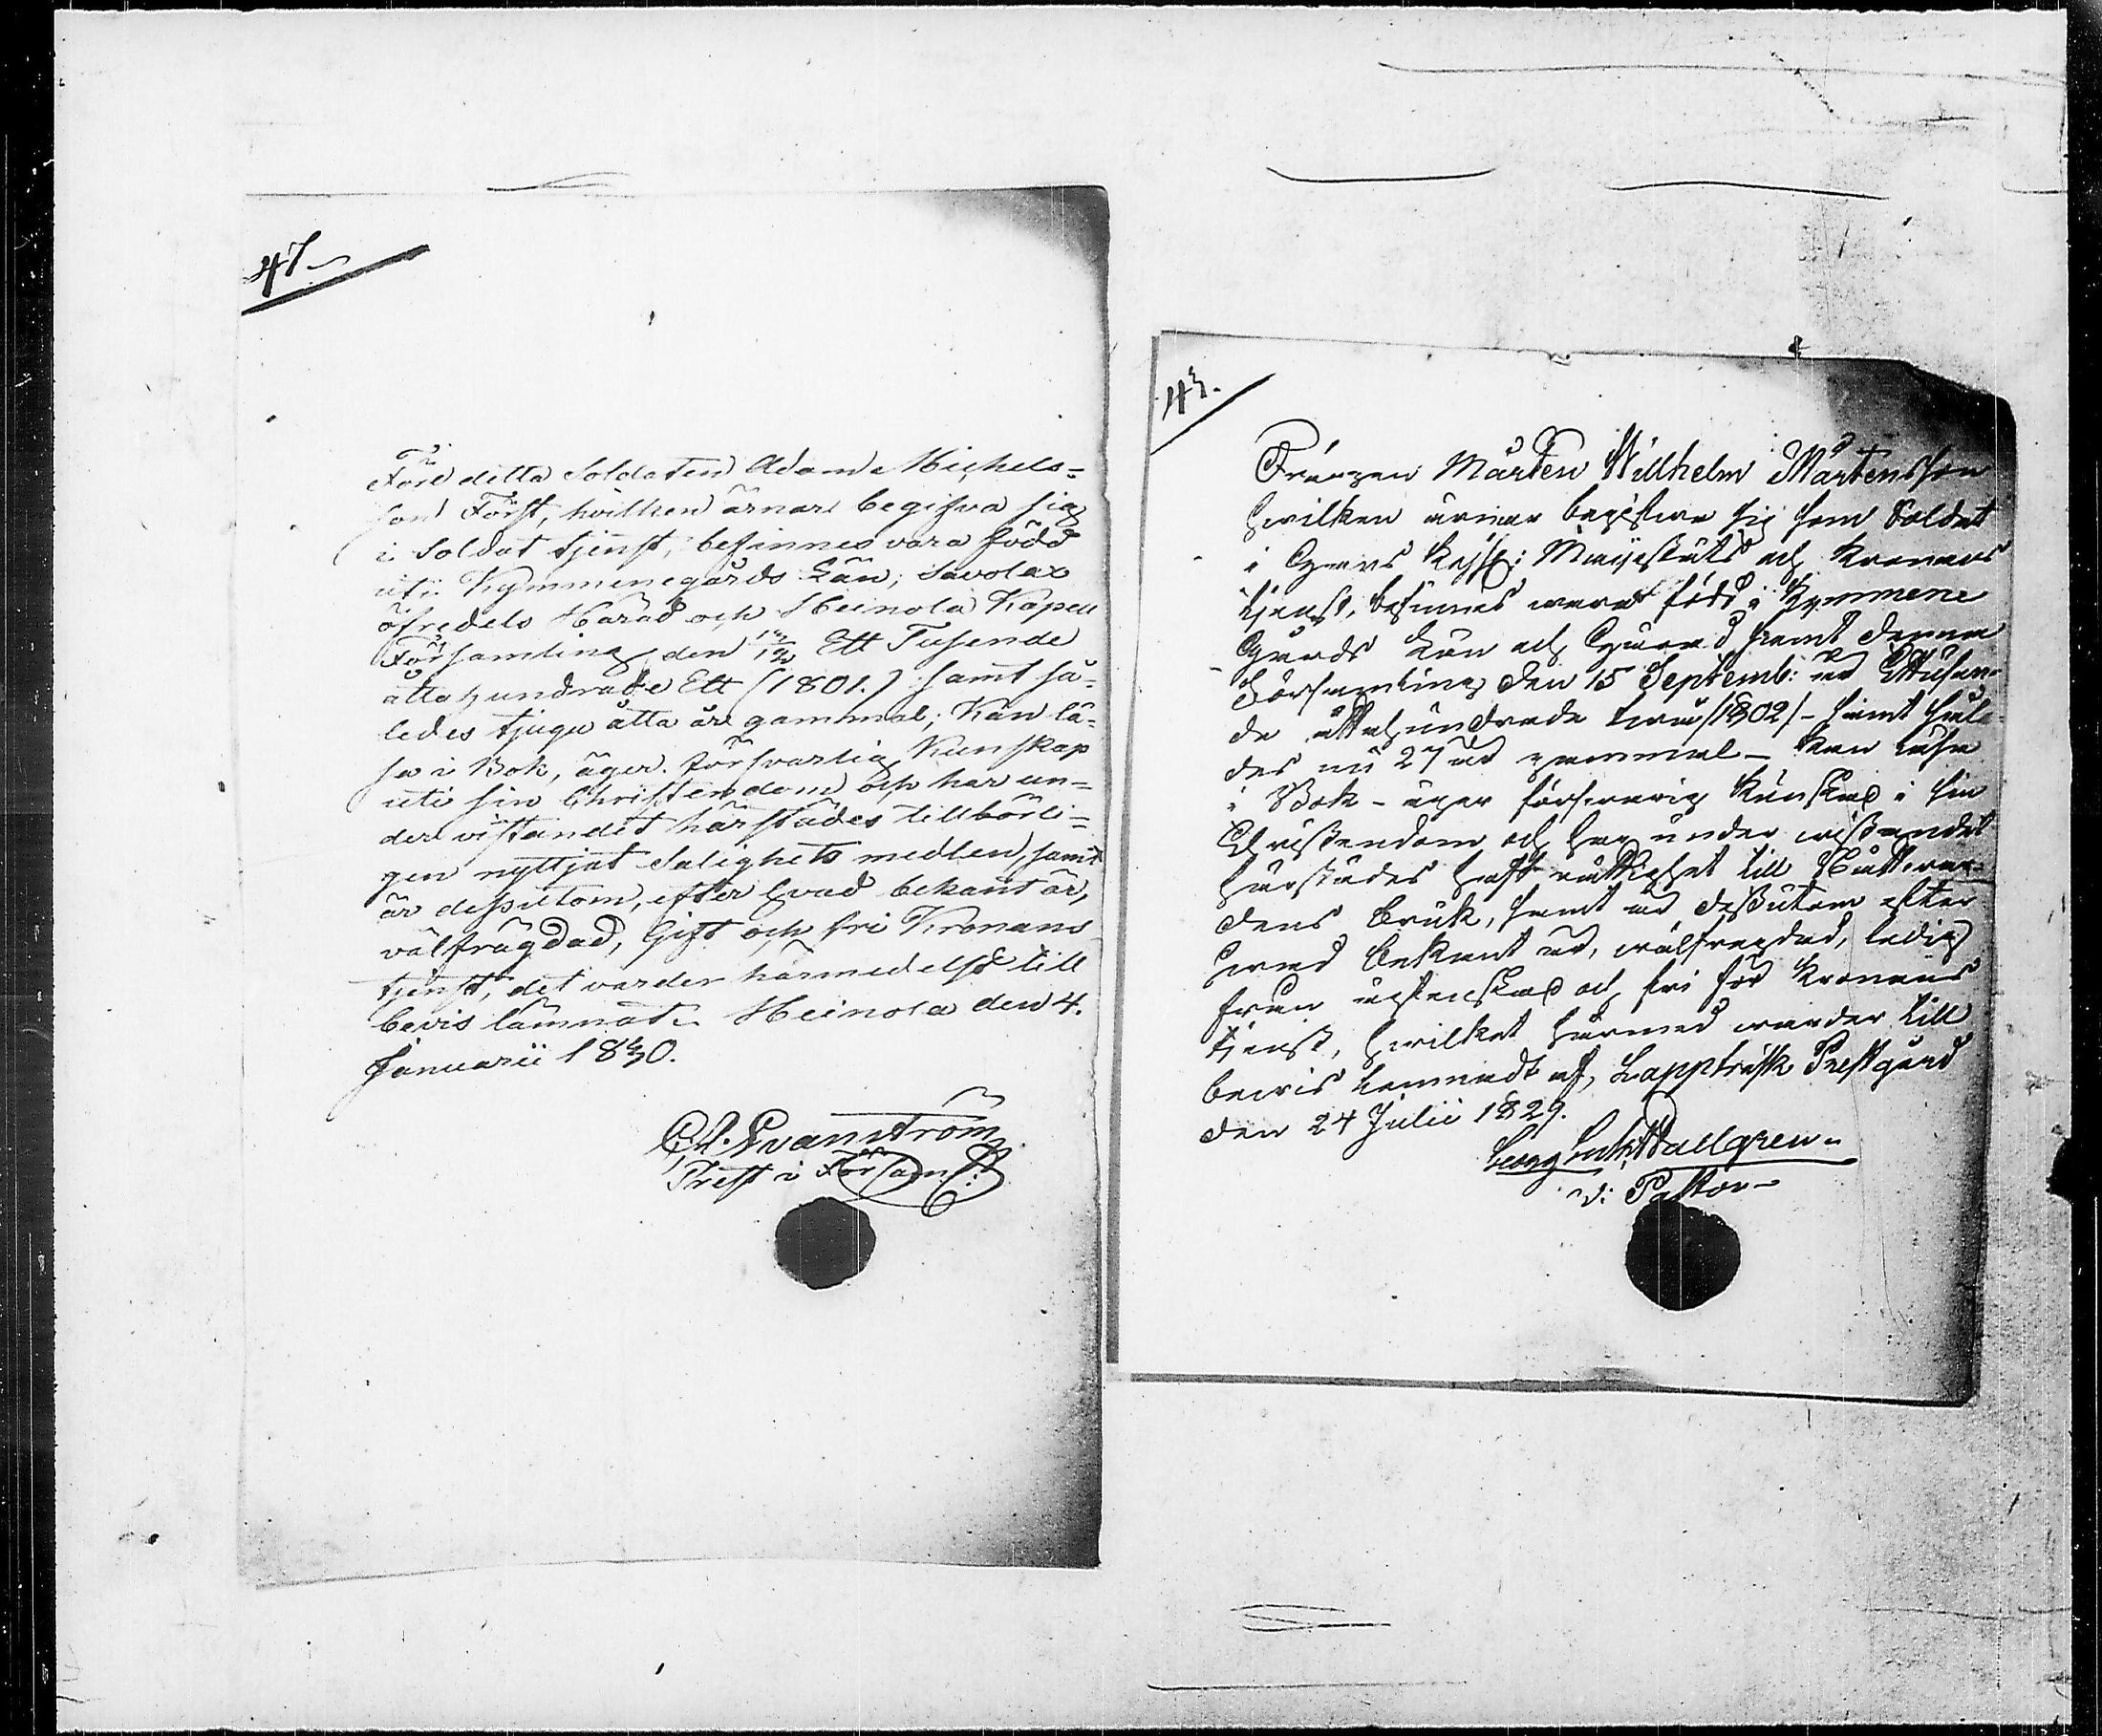 47
Före detta Soldaten Adam Michels-
son Först, hvilken ärnar begifva sig
i Soldat tjenst, befinnes vara född
uti Kymmenegårds Län, Savolax
öfredels Härad och Heinola Kapell
Församling den 12/12 Ett Tusende
åtta hundrade Ett (1801.) samt så-
ledes tjugu åtta år gammal; Kan lä-
sa i Bok, äger försvarlig Kunskap
uti sin Christendom och har un-
der vistandet härstädes tillbörli-
gen nyttjat Salighets medlen, samt
är dessutom, efter hvad bekant är,
välfrägdad, Gift och fri Kronans
tjenst, det varder härmedelst till
bevis lämnat. Heinola den 4.
Januarii 1830.
Prest i Församl:
43.
Drängen Mårten Willhelm Mårtensson
hwilken ärnar begifwa sig som Soldat
i Hans Kejs: Majestäts och Kronans
tjenst, befinnes warat född i Kymmene
Gårds Län och Härad samt denna
Församling den 15 Septemb: år Ettusen-
de åttahundrade twå /1802/ - samt såle-
des nu 27 år gammal - kan läsa
i Bok - äger förswarlig Kunskap i sin
Christendom och har under wistandet
härstädes haft rättighet till Nattwar-
dens bruk, samt är dessutom efter
hwad bekant är, wälfrejdad, ledig
från äktenskap och fri för Kronans
tjenst, hwilket härmed warder till
bewis lemnadt af, Lappträsk Prestgård
den 24 Julii 1829.
v: Pastor